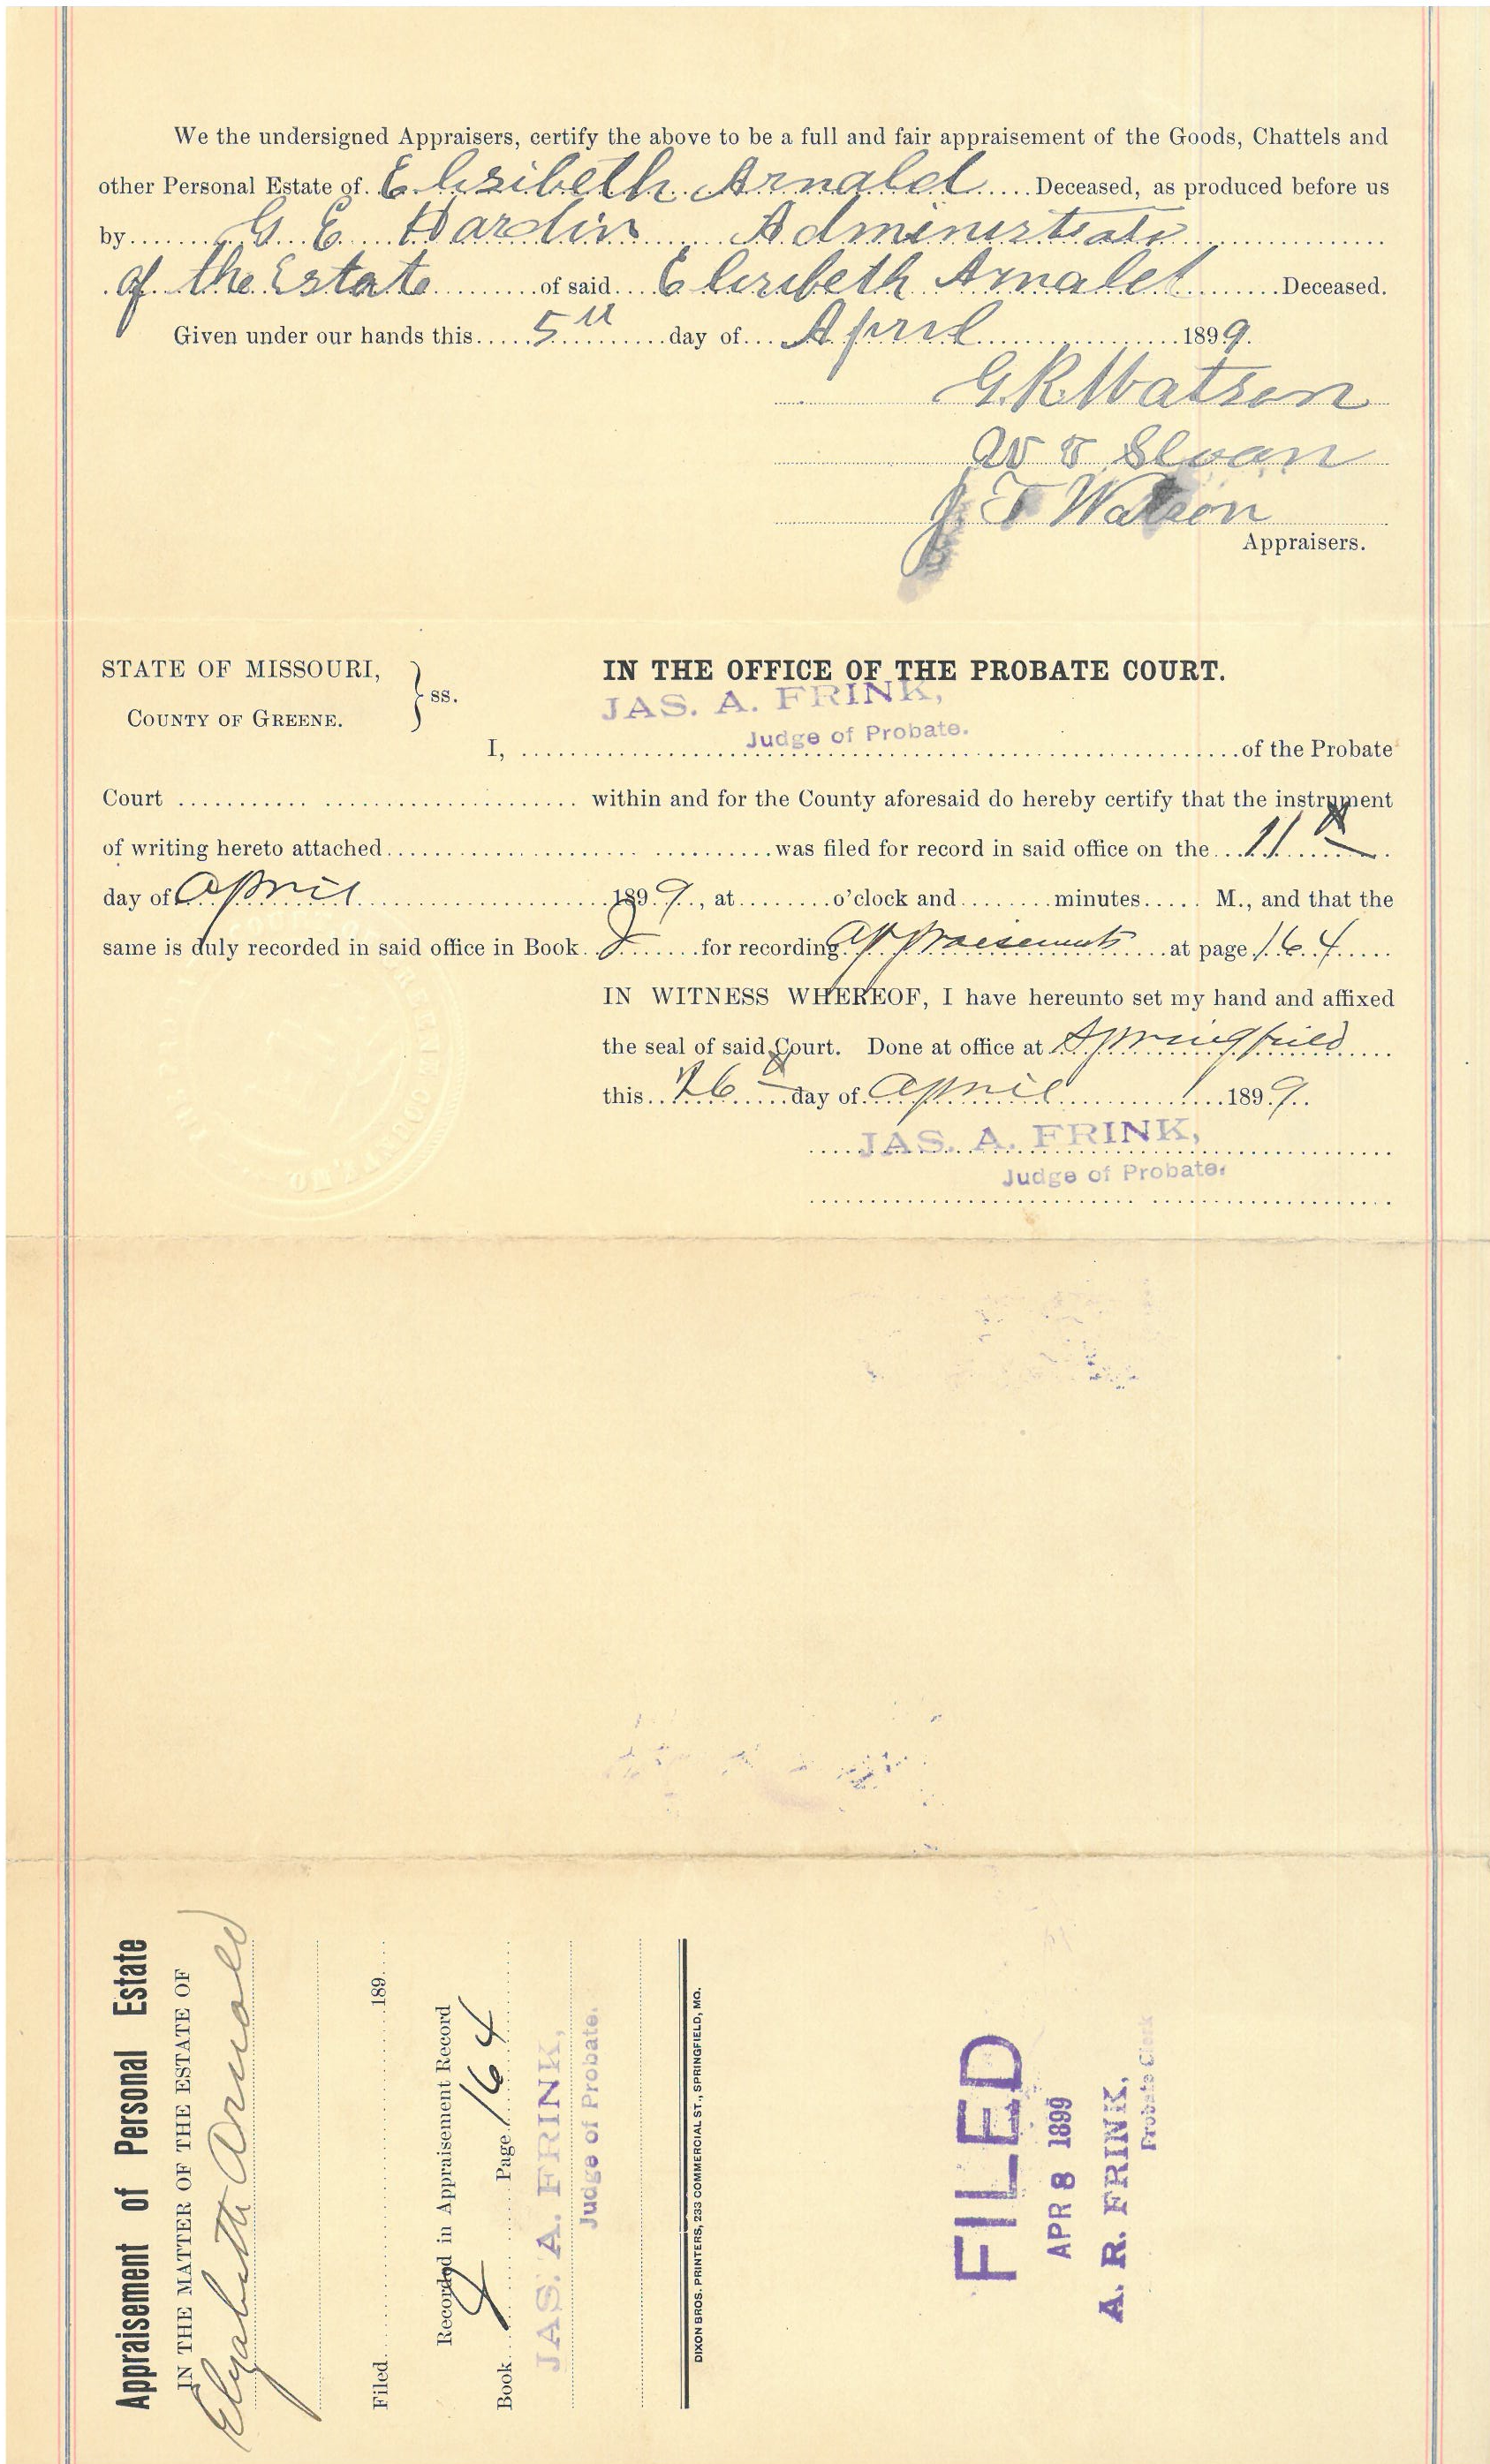 We the undersigned Appraisers, certify the above to be a full and fair appraisement of the Goods, Chattels and
other Personal Estate of Elisibeth Arnald Deceased, as produced before us
by G. E. Hardin Administrato
of the Estate of said Elisibeth Arnald Deceased.
Given under our hands this 5th day of April 1899.
G. R. Watson
W T Sloan
J. T Watson
Appraisers.
STATE OF MISSOURI,
COUNTY OF GREENE.
ss.
IN THE OFFICE OF THE PROBATE COURT.
JAS. A. FRINK,
Judge of Probate.
I, of the Probate
Court within and for the County aforesaid do hereby certify that the instrument
of writing hereto attached was filed for record in said office on the 11th
day of April 1899, at o'clock and minutes M., and that the
same is duly recorded in said office in Book for recording Appraisements at page 164
IN WITNESS WHEREOF, I have hereunto set my hand and affixed
the seal of said Court. Done at office at Springfield
this 26 day of April 1899.
JAS. A. FRINK,
Judge of Probate.
Appraisement of Personal Estate
IN THE MATTER OF THE ESTATE OF
Elizabeth Arnold
Filed 189
Recorded in Appraisement Record
Book Page 164
JAS. A. FRINK,
Judge of Probate.
DIXON BROS. PRINTERS, 233 COMMERCIAL ST., SPRINGFIELD, MO.
FILED
APR 8 1899
A. R. FRINK,
Probate Clerk